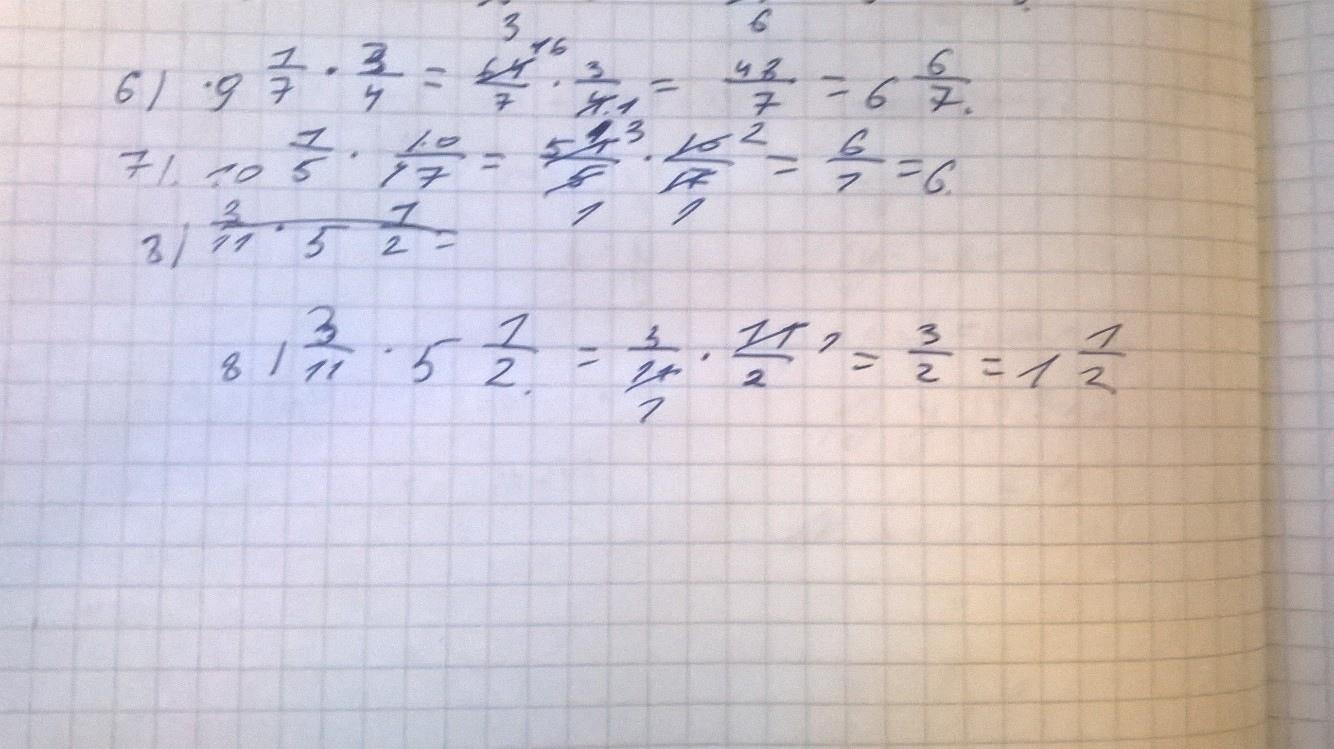 3 6
6) 9 1/7 · 3/4 = 64/7 16 · 3/4 1 = 48/7 = 6 6/7.
7). 10 1/5 · 10/17 = 51/5 3 1 · 10/17 2 1 = 6/1 = 6.
8) 3/11 · 5 1/2 =
8) 3/11 · 5 1/2 = 3/11 1 · 11/2 1 = 3/2 = 1 1/2